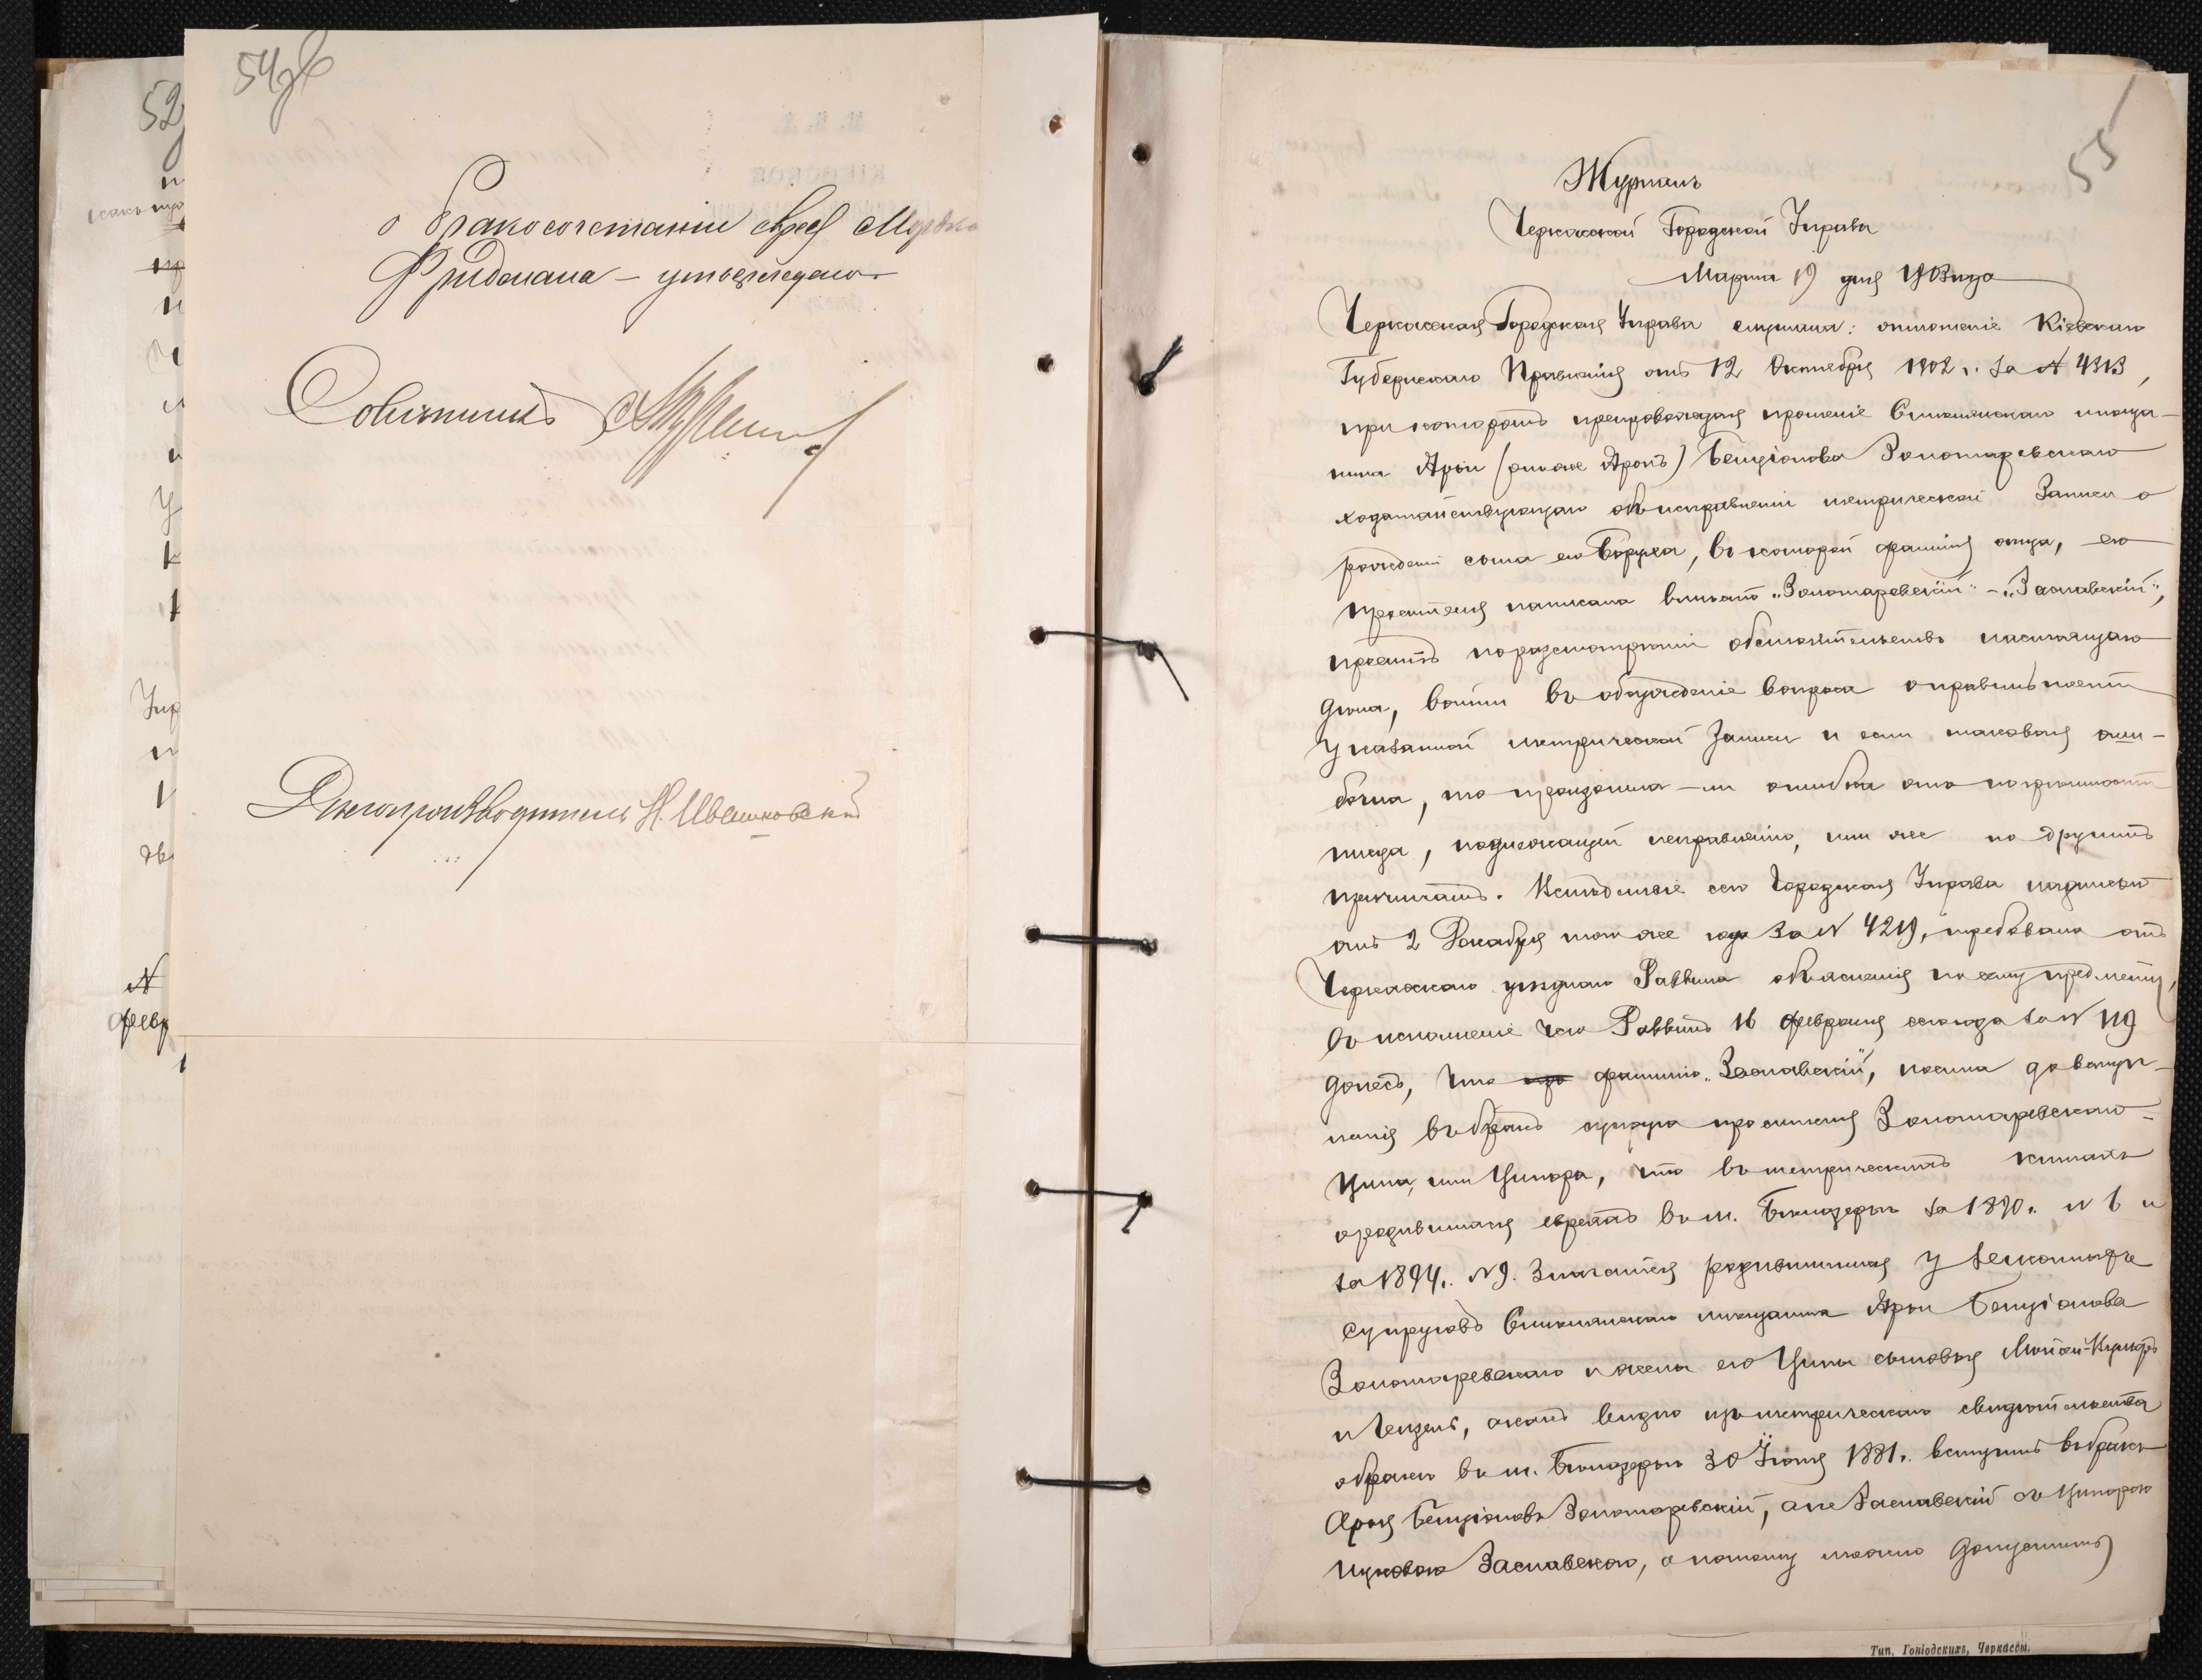 54об
52
о бракосочетаніи еврея Мордка
Фридмана – утверждено.
Совѣтникъ
Дѣлопроизводитель Н. Ивашковскій
55
Журналъ
Черкасской Городской Управы
Марта 19 дня 1903 года
Черкасская Городская Управа слушала: отношеніе Кіевскаго
Губернскаго Правленія отъ 12 Октября 1902 г. за № 4313,
при которомъ препровождено прошеніе Смѣлянскаго мѣща-
нина Арьи (онъ же Аронъ) Бенціонова Золотаревскаго
ходатайствующаго объ исправленіи метрической записи о
рожденіи сына его Боруха, въ которой фамилія отца, его
просителя написана вмѣсто „Золотаревскій" - „Заславскій",
проситъ по разсмотрѣніи обстоятельствъ настоящаго
дѣла, войти въ обсужденіе вопроса о правильности
указанной метрической записи и если таковая оши-
бочна, то произошла-ли ошибка эта по
писца, подлежащей исправленію, или же по другимъ
причинамъ. Вслѣдствіе сего Городская Управа надписью
отъ 2 Декабря того же года за № 4219, требовала отъ
Черкасскаго уѣзднаго Раввина объясненія по сему предмету,
во исполненіе чего Раввинъ 16 февраля сего года за № 119
донесъ, что фамилію „Заславскій", носила до вступ-
ленія въ бракъ супруга просителя Золотаревскаго -
Ципа, или Ципора, что въ метрическихъ книгахъ
о родившихся евреяхъ въ м. Бѣлозерьи за 1890 г. № 6 и
за 1894 г. № 9. Значатся родившимися у законныхъ
супруговъ Смѣлянскаго мѣщанина Арьи Бенціонова
Золотаревскаго и жены его Ципы сыновья Мойсей-
и Бенцель, а какъ видно изъ метрическаго свидѣтельства
о бракѣ въ м. Бѣлозерьи 30 Іюня 1881 г. вступилъ въ бракъ
Арья Бенціоновъ Золотаревскій, а не Заславскій съ Ципорою
Ицковою Заславскою, а потому можно допустить,
Тип. Гоніодскихъ, Черкассы.